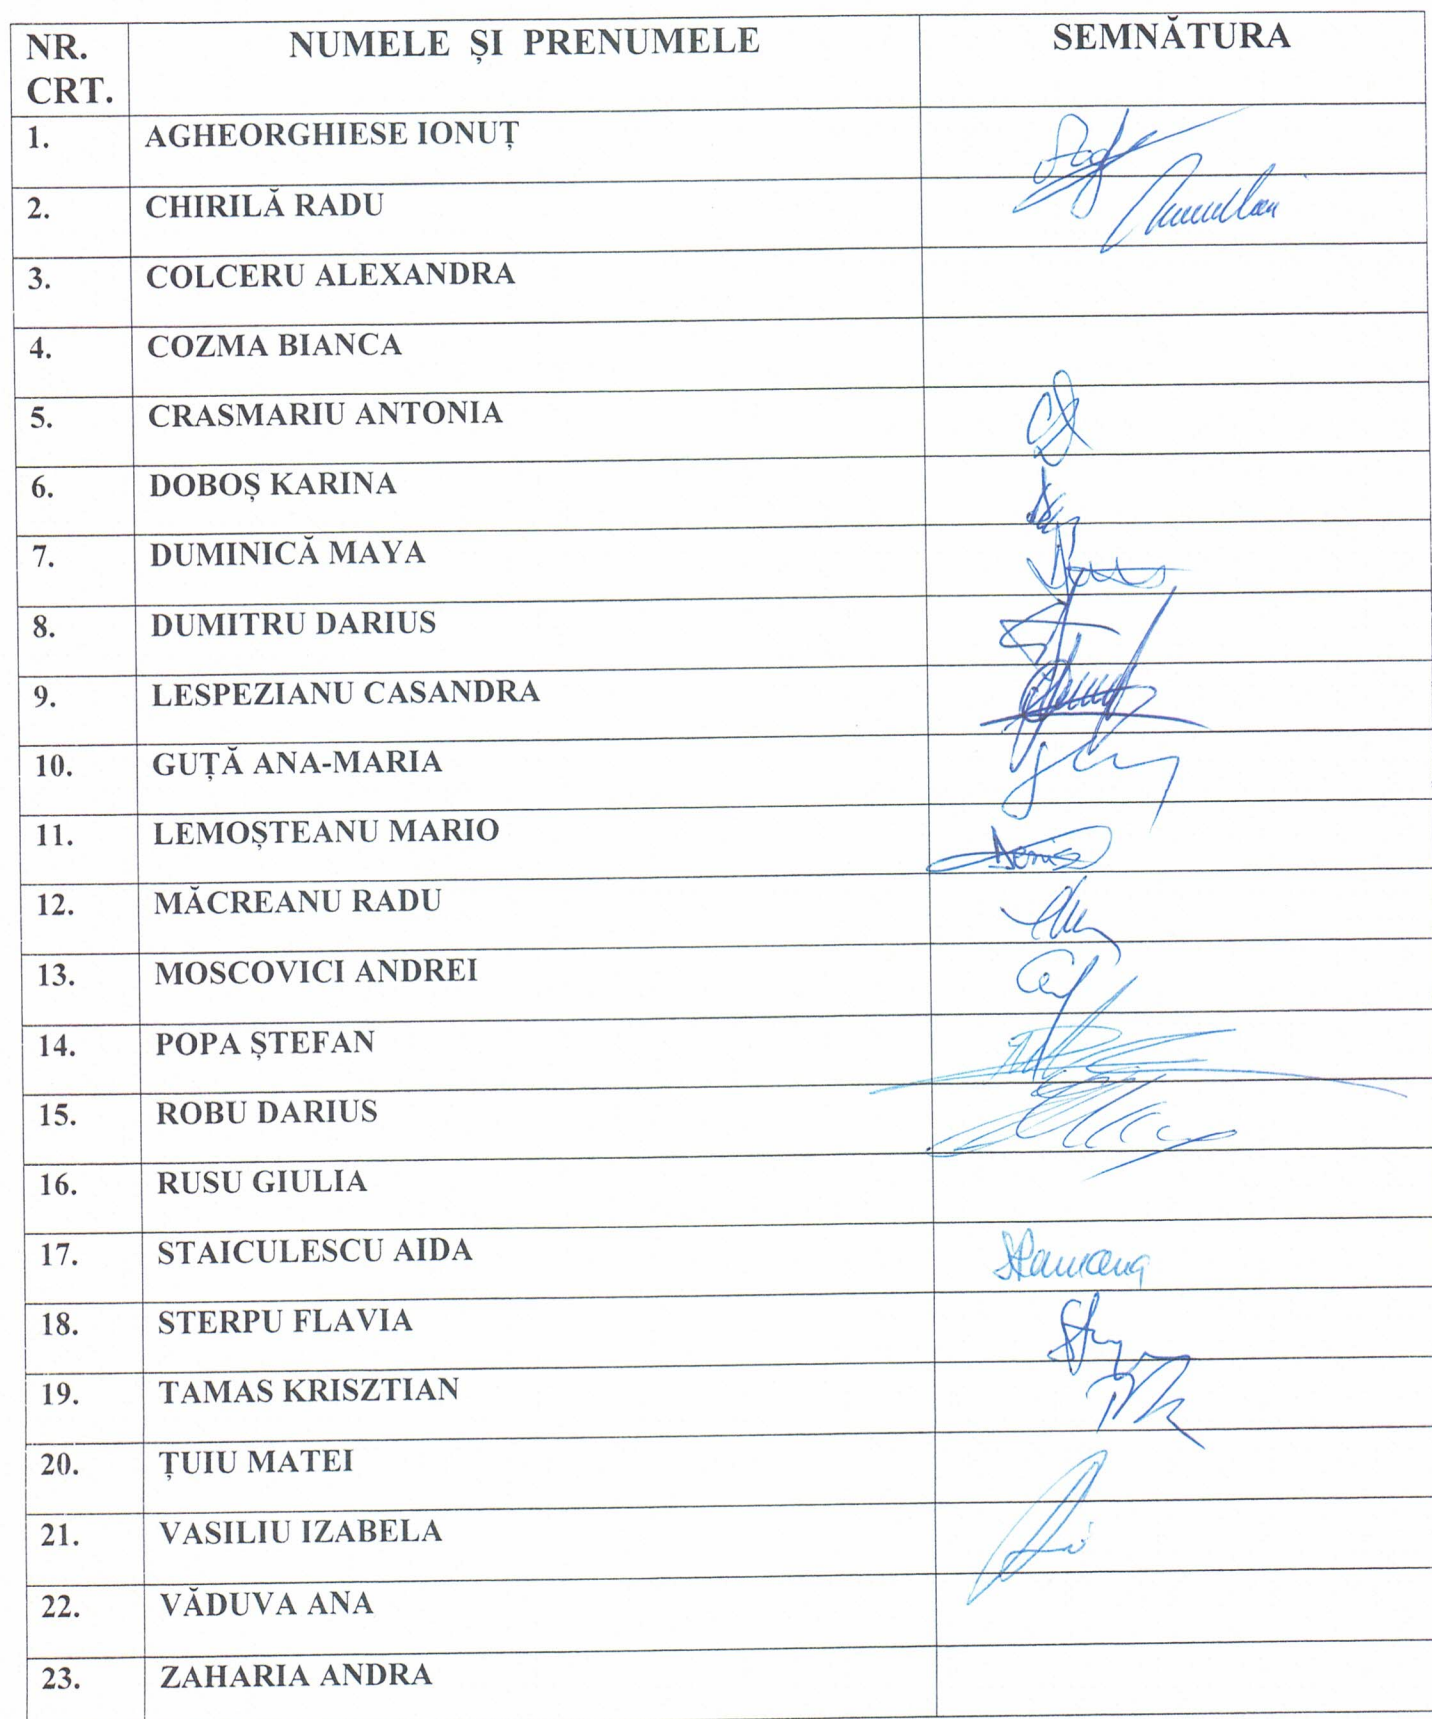 NR. CRT. NUMELE ȘI PRENUMELE SEMNĂTURA
1. AGHEORGHIESE IONUȚ
2. CHIRILĂ RADU
3. COLCERU ALEXANDRA
4. COZMA BIANCA
5. CRASMARIU ANTONIA
6. DOBOȘ KARINA
7. DUMINICĂ MAYA
8. DUMITRU DARIUS
9. LESPEZIANU CASANDRA
10. GUȚĂ ANA-MARIA
11. LEMOȘTEANU MARIO
12. MĂCREANU RADU
13. MOSCOVICI ANDREI
14. POPA ȘTEFAN
15. ROBU DARIUS
16. RUSU GIULIA
17. STAICULESCU AIDA
18. STERPU FLAVIA
19. TAMAS KRISZTIAN
20. ȚUIU MATEI
21. VASILIU IZABELA
22. VĂDUVA ANA
23. ZAHARIA ANDRA